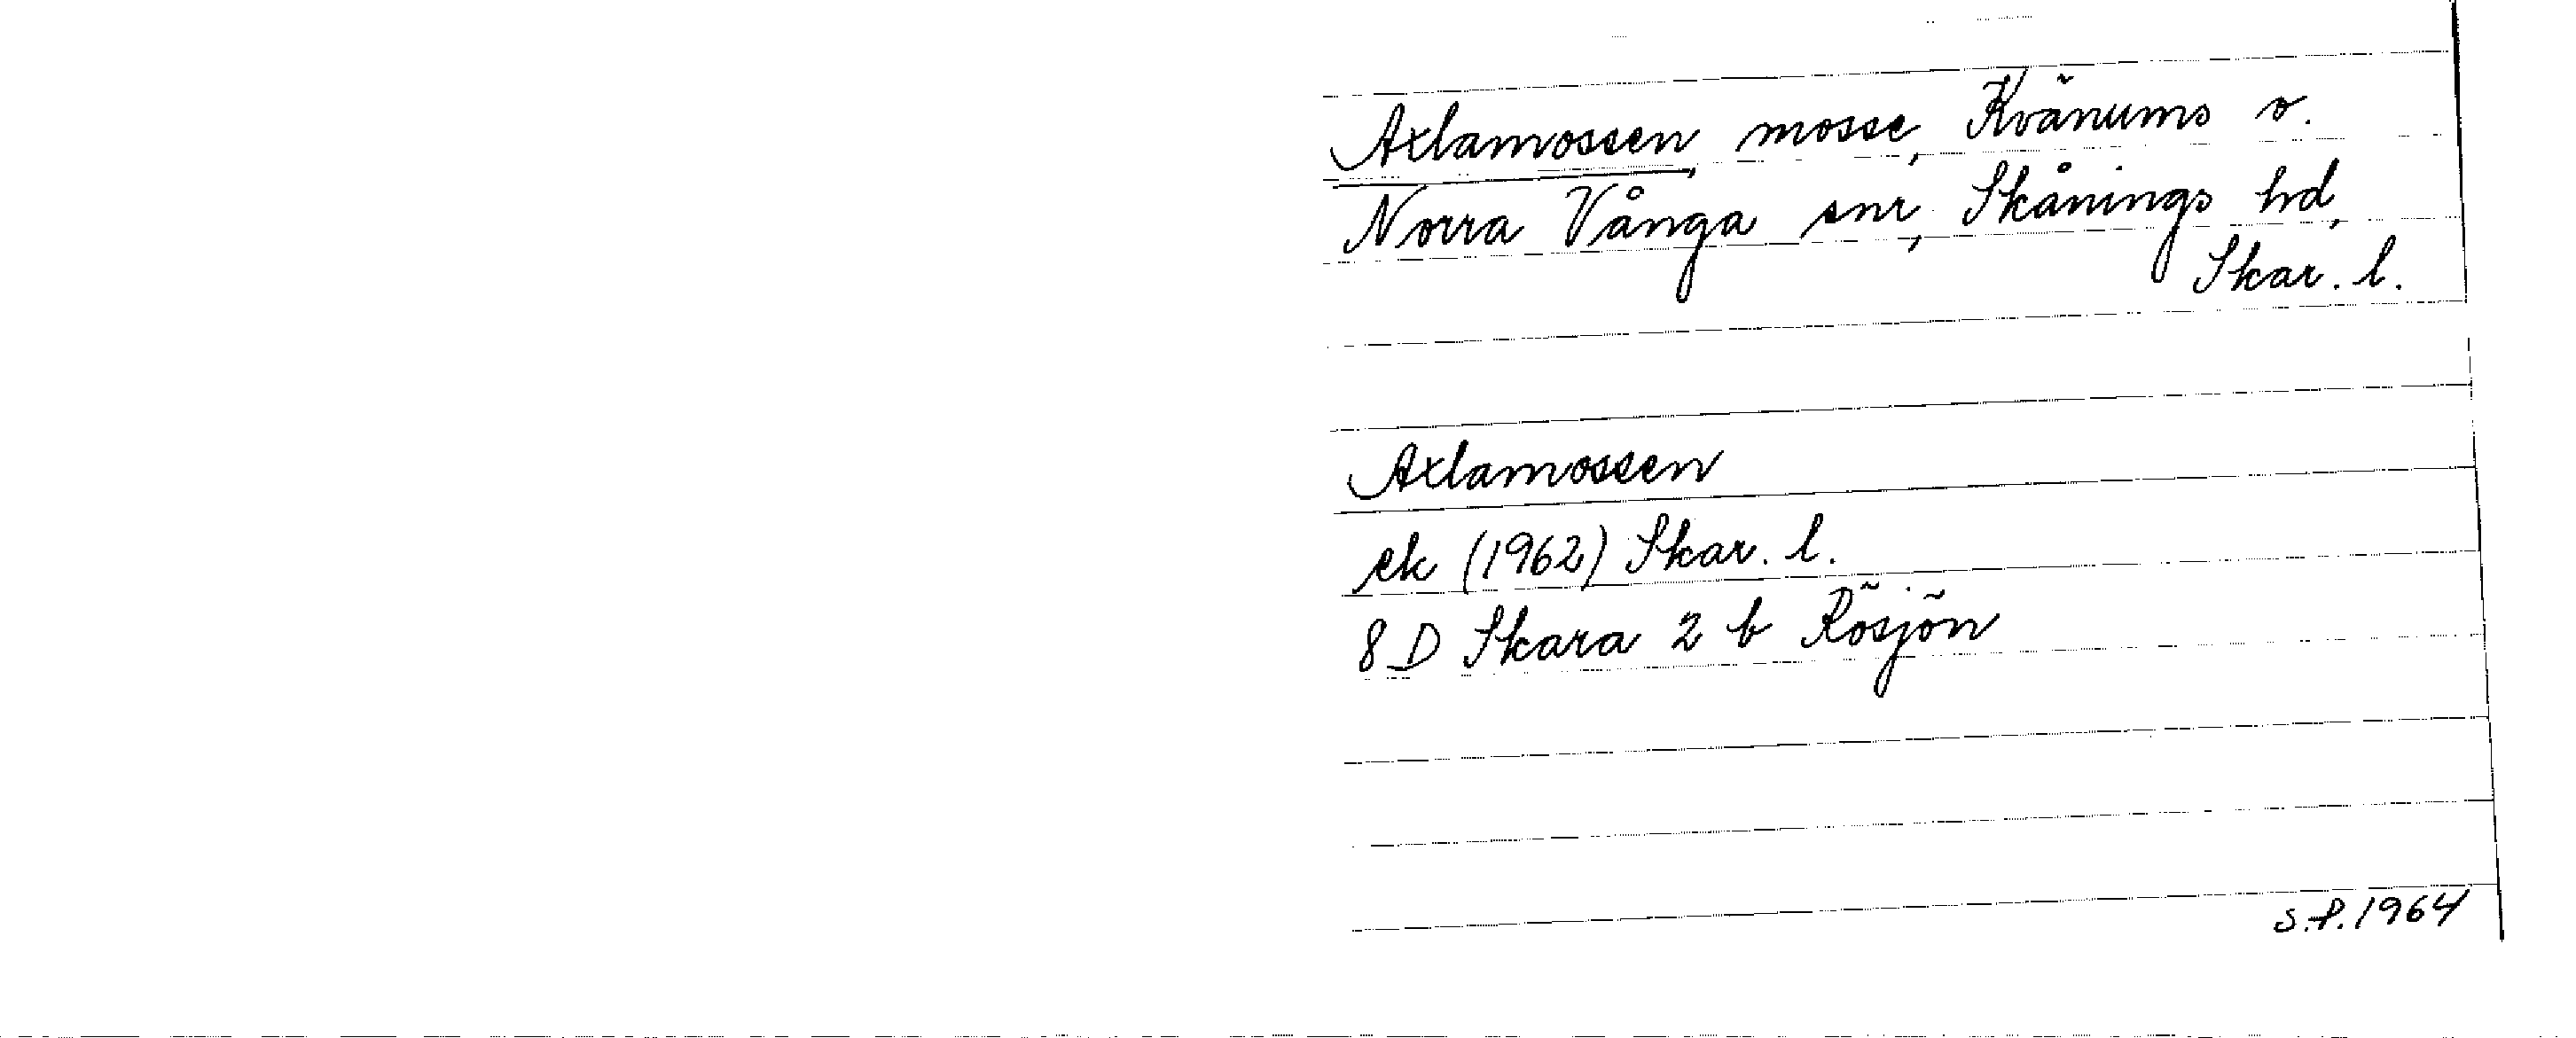 Axlamossen, mosse, Kvänums o.
Norra Vånga snr, Skånings hd,
Skar. l.
Axlamossen
ek (1962) Skar. l.
8 D Skara 2 b Rösjön
S.P. 1964